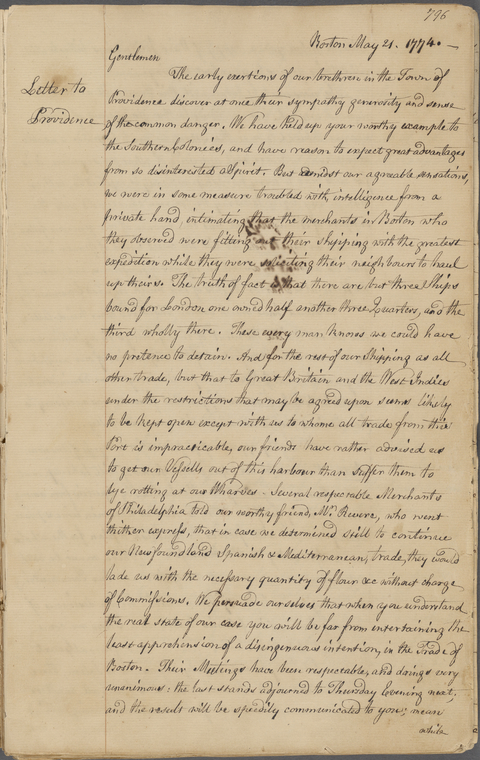 796
Boston May 21. 1774. —
Gentlemen
Letter to
Providence
The early exertions of our brethren in the Town of
Providence discover at once their sympathy generosity and sense
of the common danger. We have held up your worthy example to
the Southern Colonies, and have reason to expect great advantages
from so disinterested a spirit. But amidst our agreeable sensations,
we were in some measure troubled with intelligence from a
private hand, intimating that the merchants in Boston who
they observed were fitting out their shipping with the greatest
expedition while they were solliciting their neighbours to haul
up theirs. The truth of fact is that there are but three Ships
bound for London one owned half another three Quarters, and the
third wholly there. These every man knows we could have
no pretence to detain. And for the rest of our shipping as all
other trade, but that to Great Britain and the West Indies
under the restrictions that may be agreed upon seems likely
to be kept open except with us to whome all trade from this
Port is impracticable, our friends have rather advised us
to get our Vessells out of this harbour than suffer them to
lye rotting at our Wharves. Several respectable Merchants
of Philadelphia told our worthy friend, Mr. Revere, who went
thither express, that in case we determined still to continue
our Newfoundland Spanish & Mediterranean, trade, they would
lade us with the necessary quantity of flour &c without charge
of Commissions. We persuade ourselves that when you understand
the real state of our case you will be far from entertaining the
least apprehension of a disingenuous intention, in the Trade of
Boston. Their Meetings have been respectable, and doings very
unanimous: the last stands adjourned to Thursday evening next,
and the result will be speedily communicated to you; mean
while